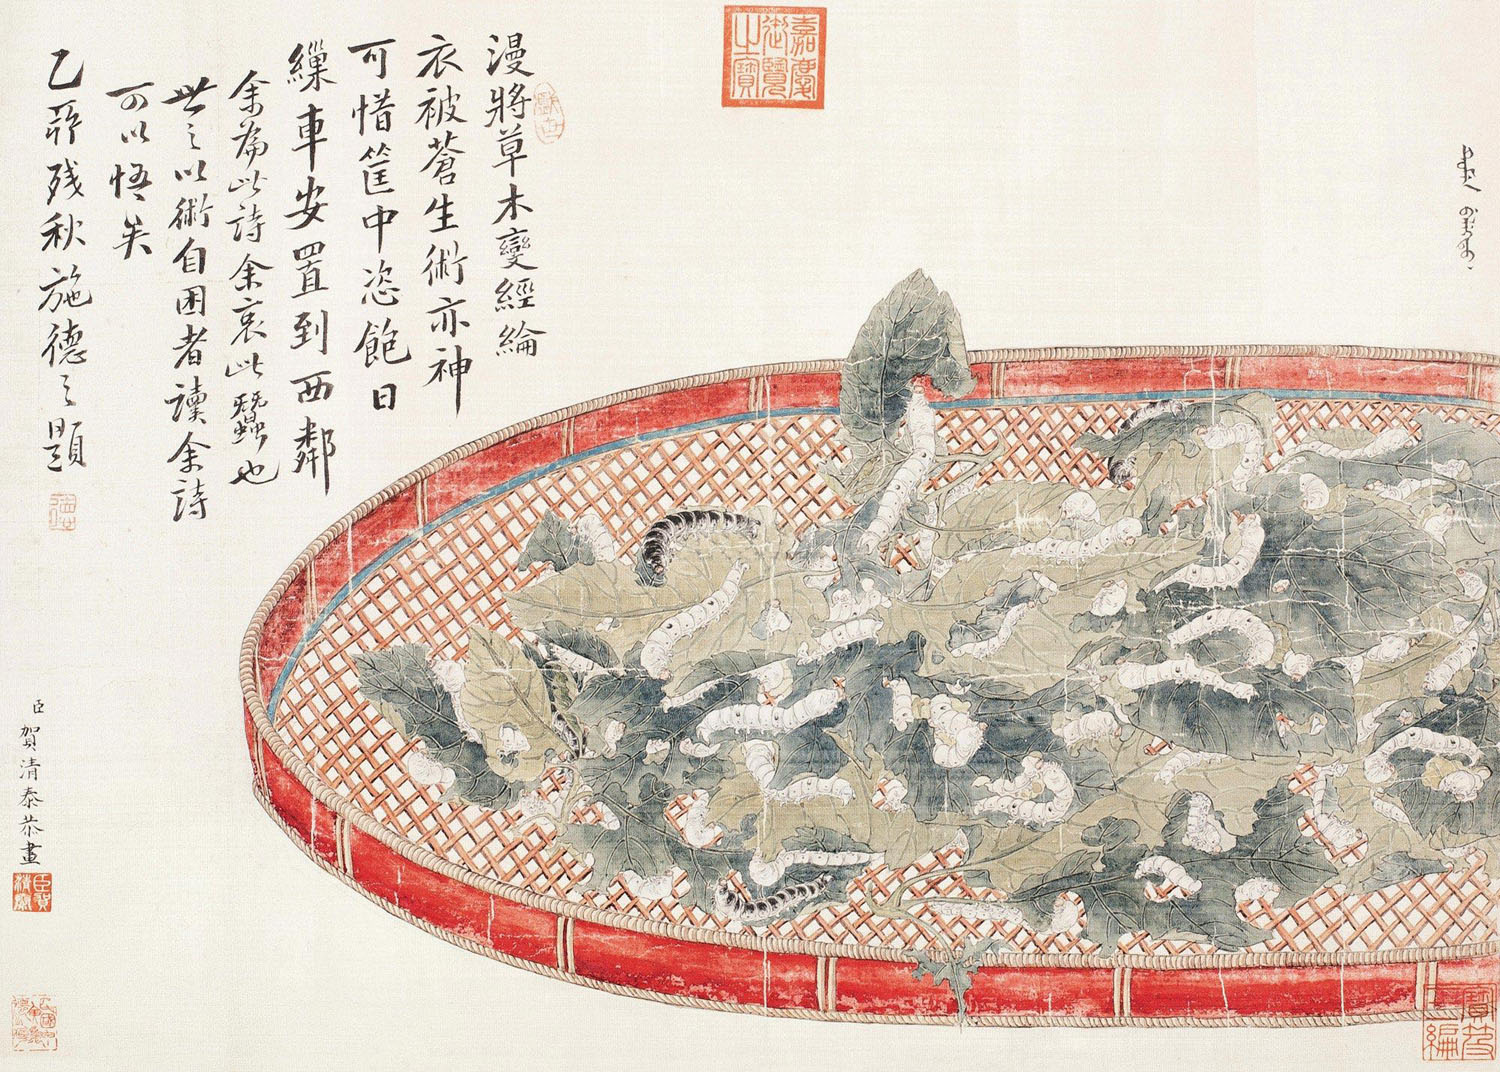 漫將草木變經綸
衣被蒼生術亦神
可惜筐中恣飽日
繅車安置到西鄰
余為此詩余哀此蠶也
世之以術自困者讀余詩
可以悟矣
乙酉残秋施德之題
臣賀清泰恭畫
嘉慶御覽之寶
臣賀
清泰
寶笈三編